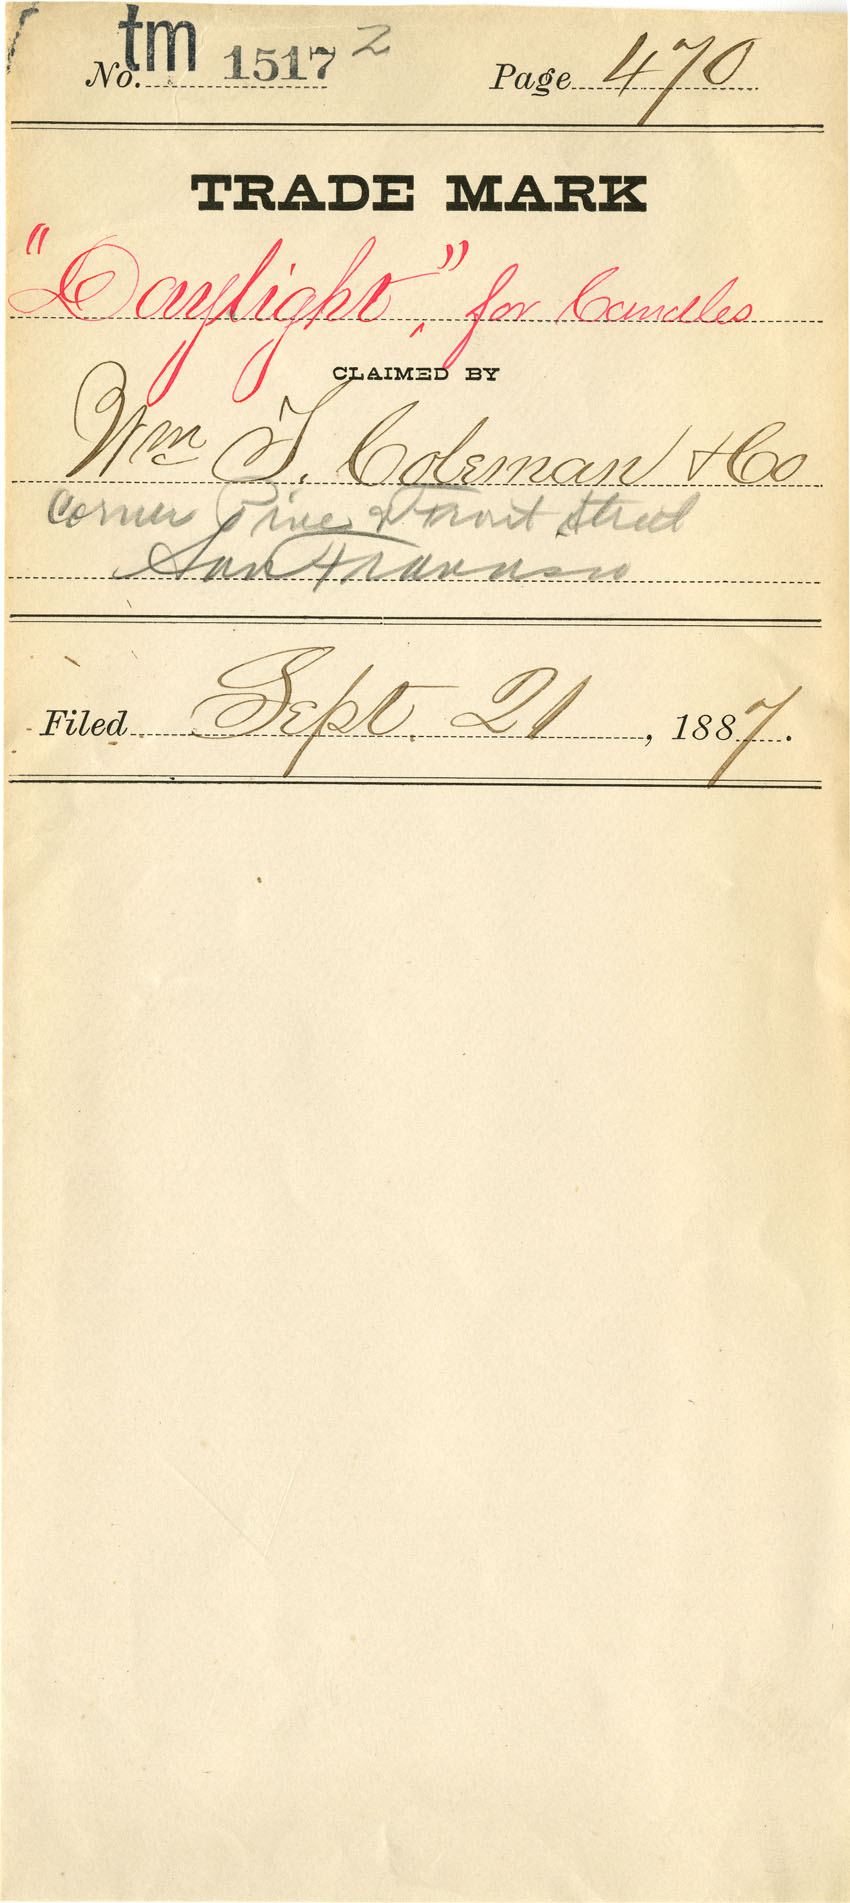 No. tm 1517 2 Page 470
TRADE MARK
"Daylight", for Candles
CLAIMED BY
Wm T. Coleman & Co
Corner Pine & Front Street
San Francisco
Filed Sept. 21, 1887.